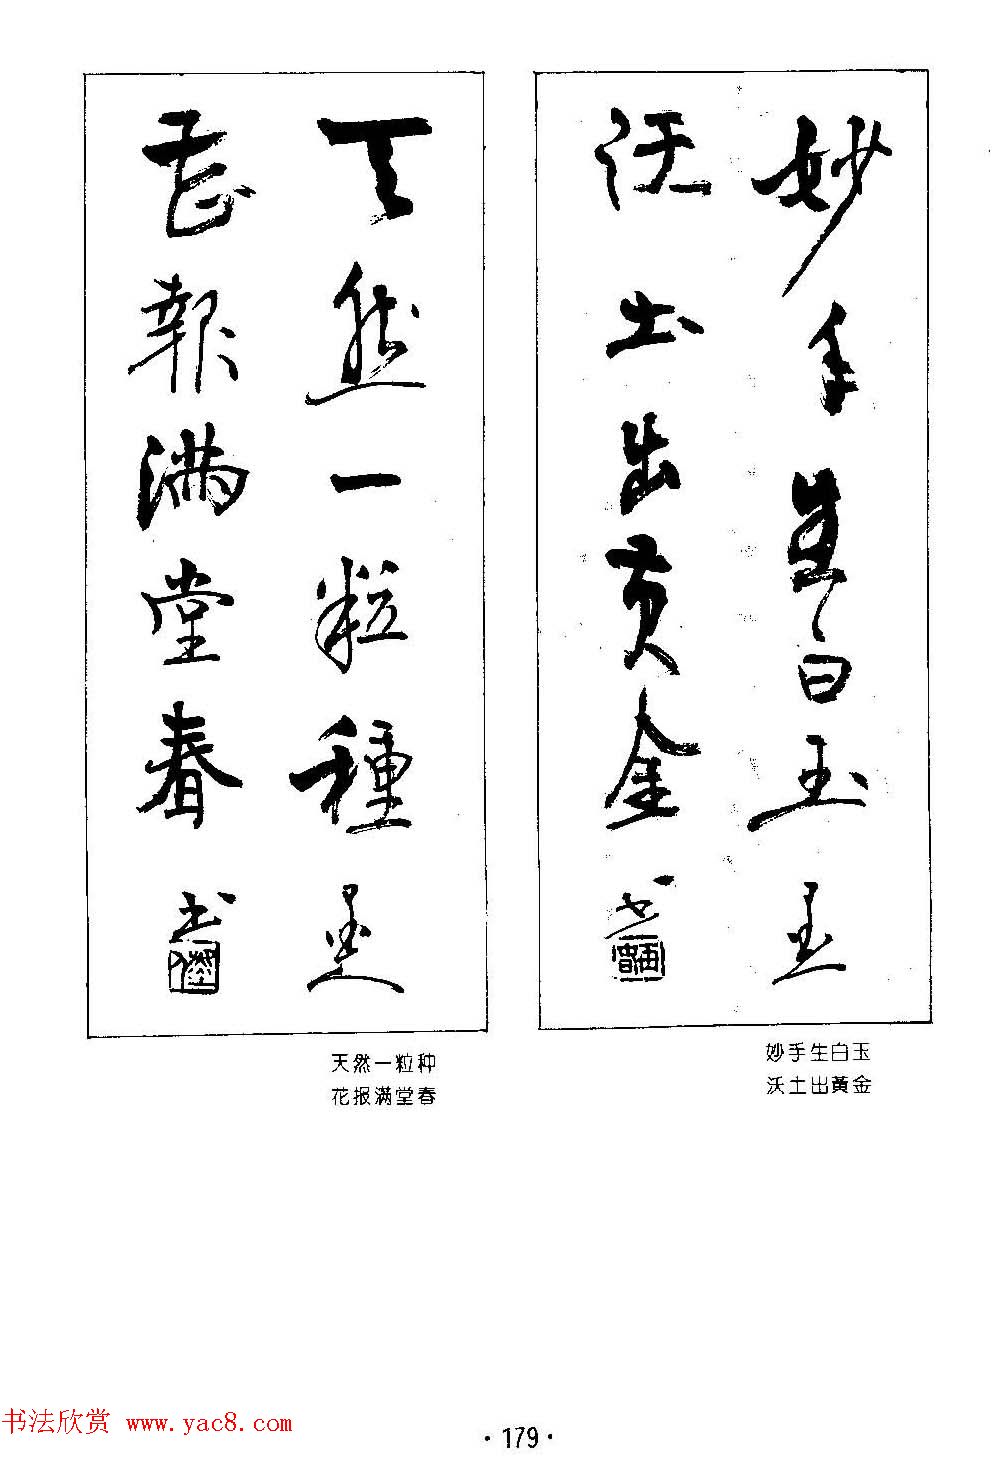 妙手生白玉
沃土出黄金
天然一粒種
花報满堂春
妙手生白玉
沃土出黄金
天然一粒种
花报满堂春
书法欣赏 www.yac8.com
·179·